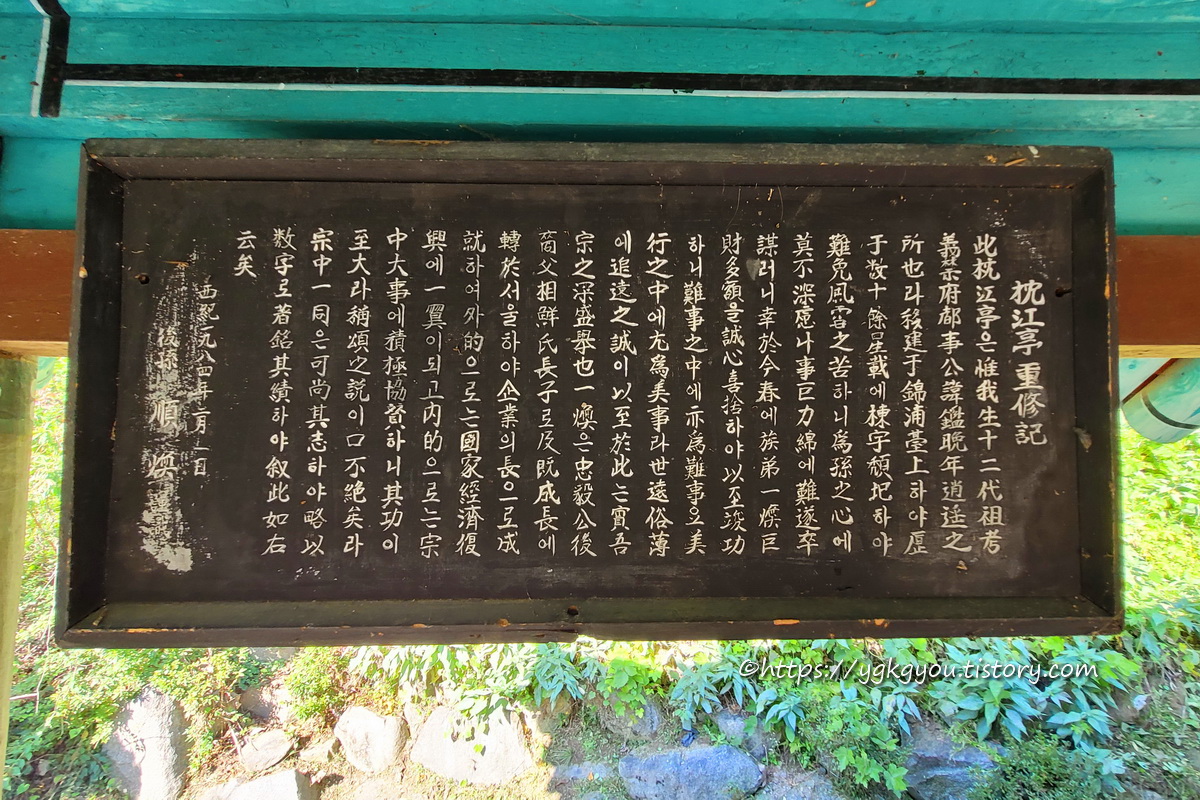 枕江亭重修記
此枕江亭은惟我生十二代祖考
義禁府都事公諱鑑晩年逍遥之
所也라移建于錦浦臺上하야歷
于数十餘星載에棟宇頹圮하야
難免風雪之苦하니爲孫之心에
莫不深慮나事巨力綿에難遂卒
謀러니幸於今春에族弟一煐巨
財多額을誠心喜捨하야以至竣功
하니難事之中에亦爲難事오美
行之中에尤爲美事라世遠俗薄
에追遠之誠이以至於此는實吾
宗之深盛擧也一煐은忠毅公後
裔父相鮮氏長子로及既成長에
轉於서울하야企業의長으로成
就하여外的으로는國家経濟復
興에一翼이되고內的으로는宗
中大事에積極協贊하니其功이
至大라稱頌之説이口不絶矣라
宗中一同은可尚其志하야略以
数字로著銘其績하야叙此如右
云矣
西紀一九八四年二月一日
後孫 順煥
©https://ygkgyou.tistory.com